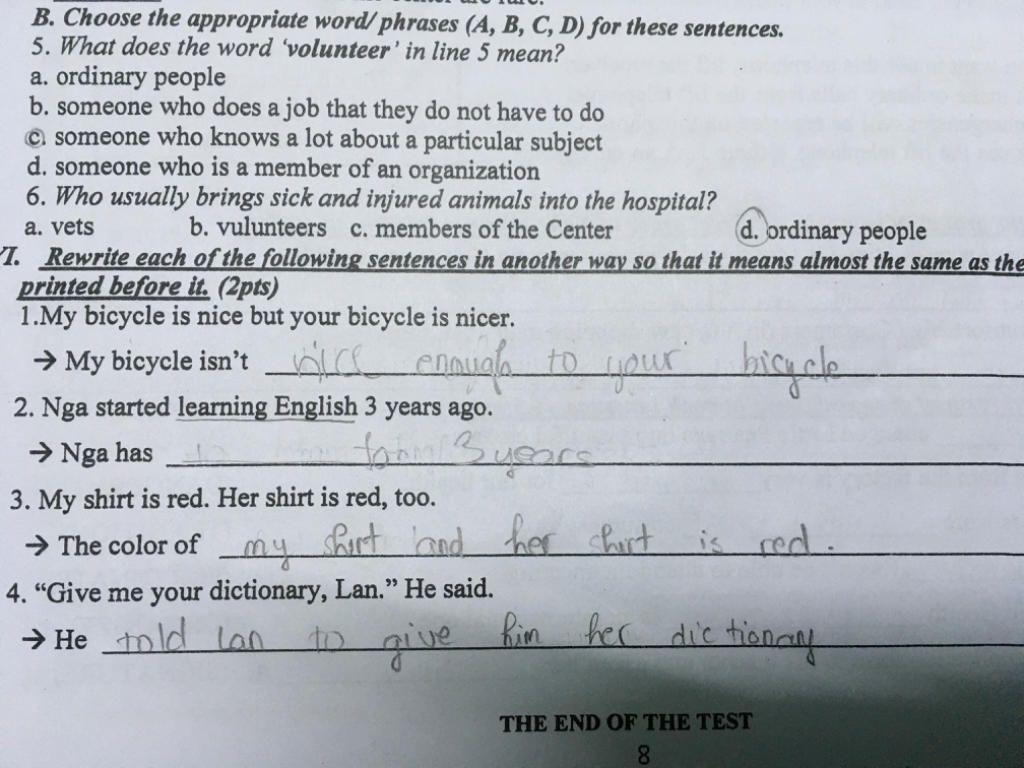 B. Choose the appropriate word/ phrases (A, B, C, D) for these sentences.
5. What does the word ‘volunteer’ in line 5 mean?
a. ordinary people
b. someone who does a job that they do not have to do
c. someone who knows a lot about a particular subject
d. someone who is a member of an organization
6. Who usually brings sick and injured animals into the hospital?
a. vets b. vulunteers c. members of the Center d. ordinary people
VI. Rewrite each of the following sentences in another way so that it means almost the same as the
printed before it. (2pts)
1.My bicycle is nice but your bicycle is nicer.
→ My bicycle isn’t nice enough to your bicycle
2. Nga started learning English 3 years ago.
→ Nga has 3 years
3. My shirt is red. Her shirt is red, too.
→ The color of my shirt and her shirt is red.
4. “Give me your dictionary, Lan.” He said.
→ He told Lan to give him her dictionary
THE END OF THE TEST
8